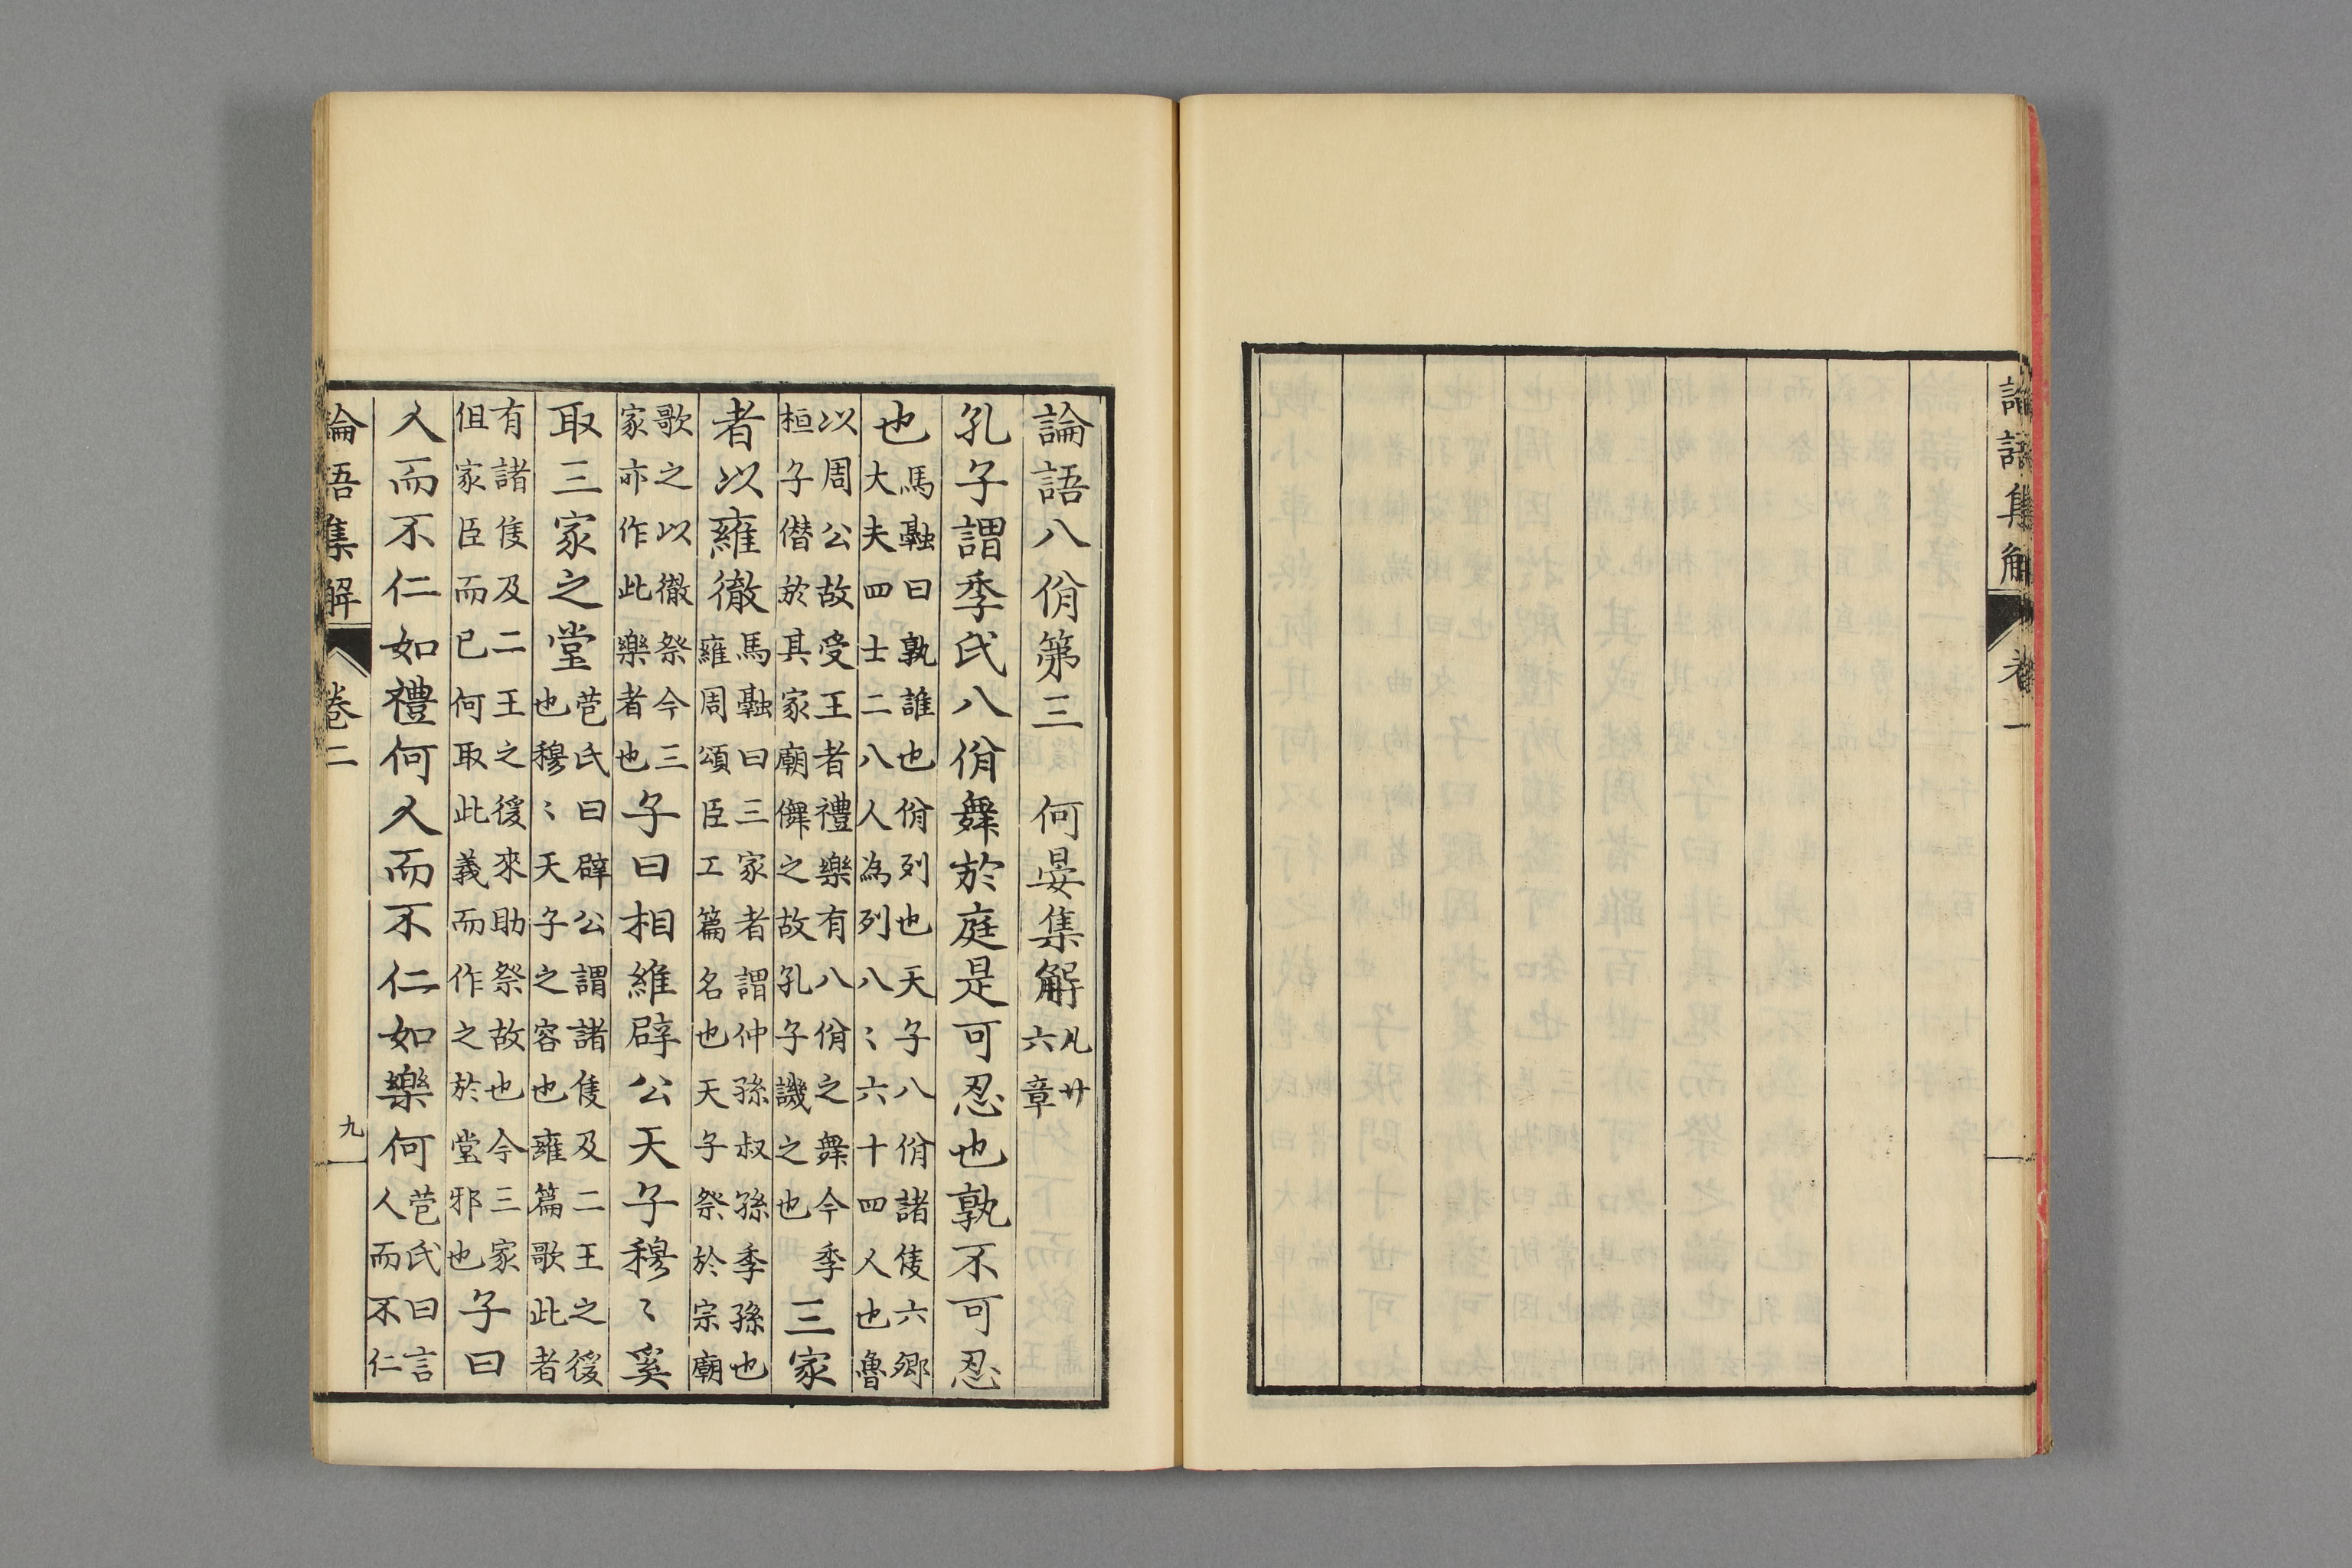 論語集解 卷一
論語八佾第三 何晏集解 凡廿六章
孔子謂季氏八佾舞於庭是可忍也孰不可忍
也 馬融曰孰誰也佾列也天子八佾諸侯六卿大夫四士二八人為列八〻六十四人也魯
以周公故受王者禮樂有八佾之舞今季桓子僭於其家廟儛之故孔子譏之也 三家
者以雍徹 馬融曰三家者謂仲孫叔孫季孫也雍周頌臣工篇名也天子祭於宗廟
歌之以徹祭今三家亦作此樂者也 子曰相維辟公天子穆〻奚
取三家之堂 苞氏曰辟公謂諸侯及二王之後也穆〻天子之容也雍篇歌此者
有諸侯及二王之後來助祭故也今三家但家臣而已何取此義而作之於堂邪也 子曰
人而不仁如禮何人而不仁如樂何 苞氏曰言人而不仁
論語集解 卷二 九